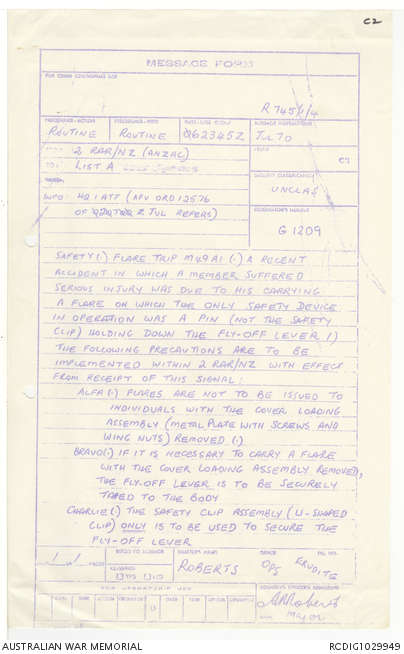 C2
MESSAGE FORM
R 745/1/4
ROUTINE ROUTINE 062345Z Jul 70
2 RAR/NZ (ANZAC)
TO: LIST A
SECURITY CLASSIFICATION
UNCLAS
INFO: HQ 1 ATF (AFV ORD 12576
OF 2 JUL REFERS)
ORIGINATOR'S NUMBER
G 1209
SAFETY (.) FLARE TRIP M49A1 (.) A RECENT
ACCIDENT IN WHICH A MEMBER SUFFERED
SERIOUS INJURY WAS DUE TO HIS CARRYING
A FLARE ON WHICH THE ONLY SAFETY DEVICE
IN OPERATION WAS A PIN (NOT THE SAFETY
CLIP) HOLDING DOWN THE FLY-OFF LEVER (.)
THE FOLLOWING PRECAUTIONS ARE TO BE
IMPLEMENTED WITHIN 2 RAR/NZ WITH EFFECT
FROM RECEIPT OF THIS SIGNAL:
ALFA (.) FLARES ARE NOT TO BE ISSUED TO
INDIVIDUALS WITH THE COVER LOADING
ASSEMBLY (METAL PLATE WITH SCREWS AND
WING NUTS) REMOVED (.)
BRAVO (.) IF IT IS NECESSARY TO CARRY A FLARE
WITH THE COVER LOADING ASSEMBLY REMOVED,
THE FLY-OFF LEVER IS TO BE SECURELY
TAPED TO THE BODY
CHARLIE (.) THE SAFETY CLIP ASSEMBLY (U-SHAPED
CLIP) ONLY IS TO BE USED TO SECURE THE
FLY-OFF LEVER
ROBERTS OPS ERUDITE
FOR OPERATORS USE
Major
AUSTRALIAN WAR MEMORIAL
RCDIG1029949